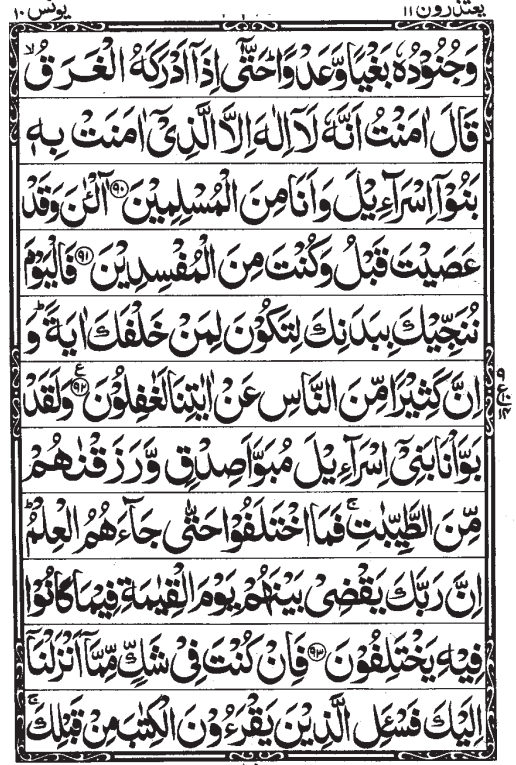 يعتذرون ۱۱
يونس ۱۰
وَجُنُوْدُهٗ بَغْيًا وَّعَدْوًا ؕ حَتّٰۤى اِذَاۤ اَدْرَكَهُ الْغَرَقُ ۙ
قَالَ اٰمَنْتُ اَنَّهٗ لَاۤ اِلٰهَ اِلَّا الَّذِىْۤ اٰمَنَتْ بِهٖ
بَنُوْۤا اِسْرَآءِيْلَ وَاَنَا مِنَ الْمُسْلِمِيْنَ ۹۰ آٰلْـٰٔنَ وَقَدْ
عَصَيْتَ قَبْلُ وَكُنْتَ مِنَ الْمُفْسِدِيْنَ ۹۱ فَالْيَوْمَ
نُنَجِّيْكَ بِبَدَنِكَ لِتَكُوْنَ لِمَنْ خَلْفَكَ اٰيَةً ؕ وَ
اِنَّ كَثِيْرًا مِّنَ النَّاسِ عَنْ اٰيٰتِنَا لَغٰفِلُوْنَ ۹۲ ع وَلَقَدْ
بَوَّاْنَا بَنِىْۤ اِسْرَآءِيْلَ مُبَوَّاَ صِدْقٍ وَّرَزَقْنٰهُمْ
مِّنَ الطَّيِّبٰتِ ۚ فَمَا اخْتَلَفُوْا حَتّٰى جَآءَهُمُ الْعِلْمُ ؕ
اِنَّ رَبَّكَ يَقْضِىْ بَيْنَهُمْ يَوْمَ الْقِيٰمَةِ فِيْمَا كَانُوْا
فِيْهِ يَخْتَلِفُوْنَ ۹۳ فَاِنْ كُنْتَ فِىْ شَكٍّ مِّمَّاۤ اَنْزَلْنَاۤ
اِلَيْكَ فَسْـَٔلِ الَّذِيْنَ يَقْرَءُوْنَ الْكِتٰبَ مِنْ قَبْلِكَ ۚ